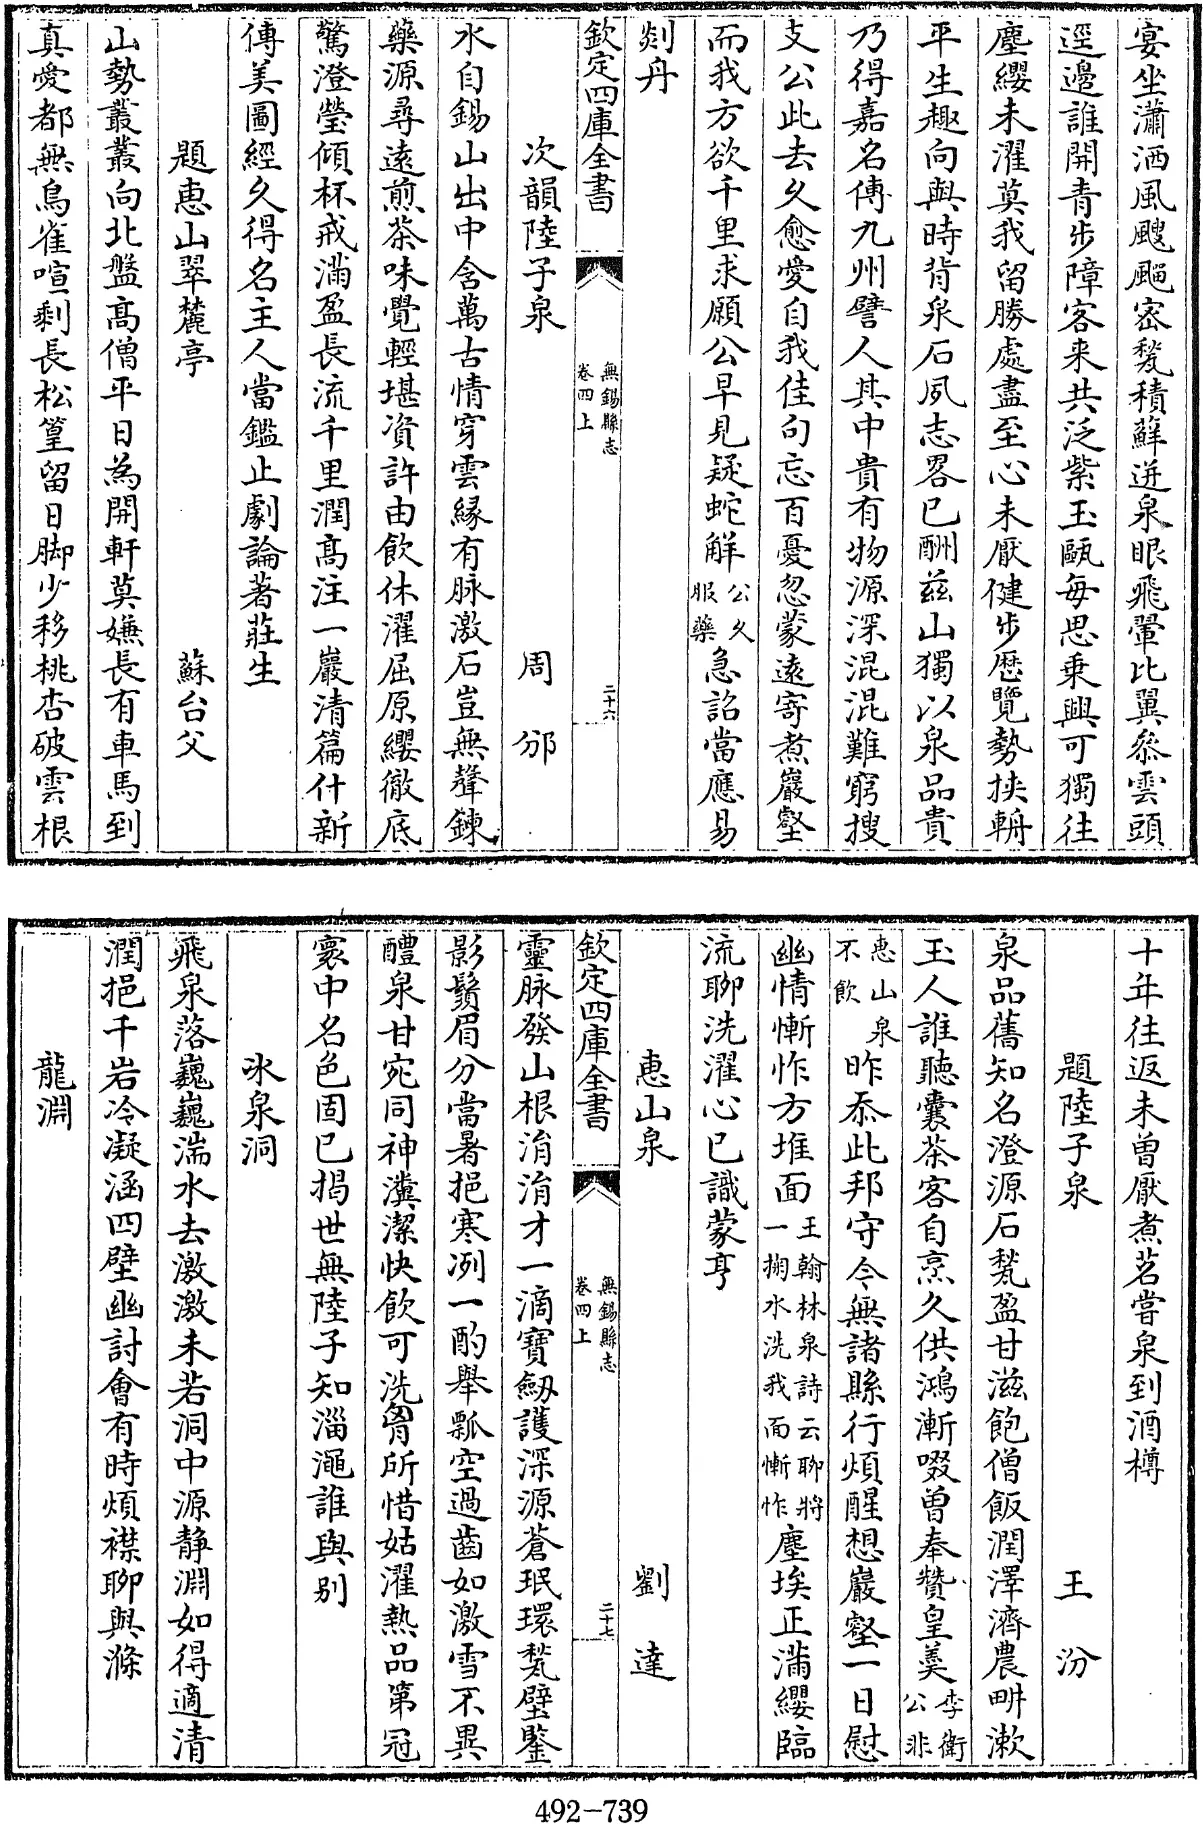 宴坐瀟洒風颼飀密甃積蘚迸泉眼飛翬比翼叅雲頭
逕邊誰開青步障客来共泛紫玉甌每思乗興可獨往
塵纓未濯莫我留勝處盡至心未厭健步歴覽勢挟輈
平生趣向與時背泉石夙志畧已酬兹山獨以泉品貴
乃得嘉名傳九州譬人其中貴有物源深混混難窮搜
支公此去久愈愛自我佳句忘百憂忽蒙遠寄煮巖壑
而我方欲千里求願公早見疑蛇解公久服藥急詔當應易
剡舟
欽定四庫全書
無錫縣志
卷四上
二十六
次韻陸子泉 周邠
水自錫山出中含萬古情穿雲緣有脉激石豈無聲鍊
藥源尋遠煎茶味覺輕堪資許由飲休濯屈原纓徹底
驚澄瑩傾杯戒滿盈長流千里潤髙注一巖清篇什新
傳美圖經久得名主人當鑑止劇論著莊生
題惠山翠麓亭 蘇台父
山勢叢叢向北盤髙僧平日為開軒莫嫌長有車馬到
真愛都無鳥雀喧剩長松篁留日脚少移桃杏破雲根
十年往返未曽厭煮茗嘗泉到酒樽
題陸子泉 王汾
泉品舊知名澄源石甃盈甘滋飽僧飯潤澤濟農畊漱
玉人誰聽囊茶客自烹久供鴻漸啜曽奉贊皇羮李衛公非
惠山泉不飲昨忝此邦守令無諸縣行煩醒想巖壑一日慰
幽情慚怍方堆面王翰林泉詩云聊將一掬水洗我面慚怍塵埃正滿纓臨
流聊洗濯心已識蒙亨
惠山泉 劉達
欽定四庫全書
無錫縣志
卷四上
二十七
靈脉發山根涓涓才一滴寶劔護深源蒼珉環甃壁鑒
影鬚眉分當暑挹寒冽一酌舉瓢空過齒如激雪不異
醴泉甘宛同神瀵潔快飲可洗胷所惜姑濯熱品第冠
寰中名色固已揭世無陸子知淄澠誰與别
氷泉洞
飛泉落巍巍湍水去激激未若洞中源静淵如得適清
潤挹千岩冷凝涵四壁幽討會有時煩襟聊與滌
龍淵
492-739